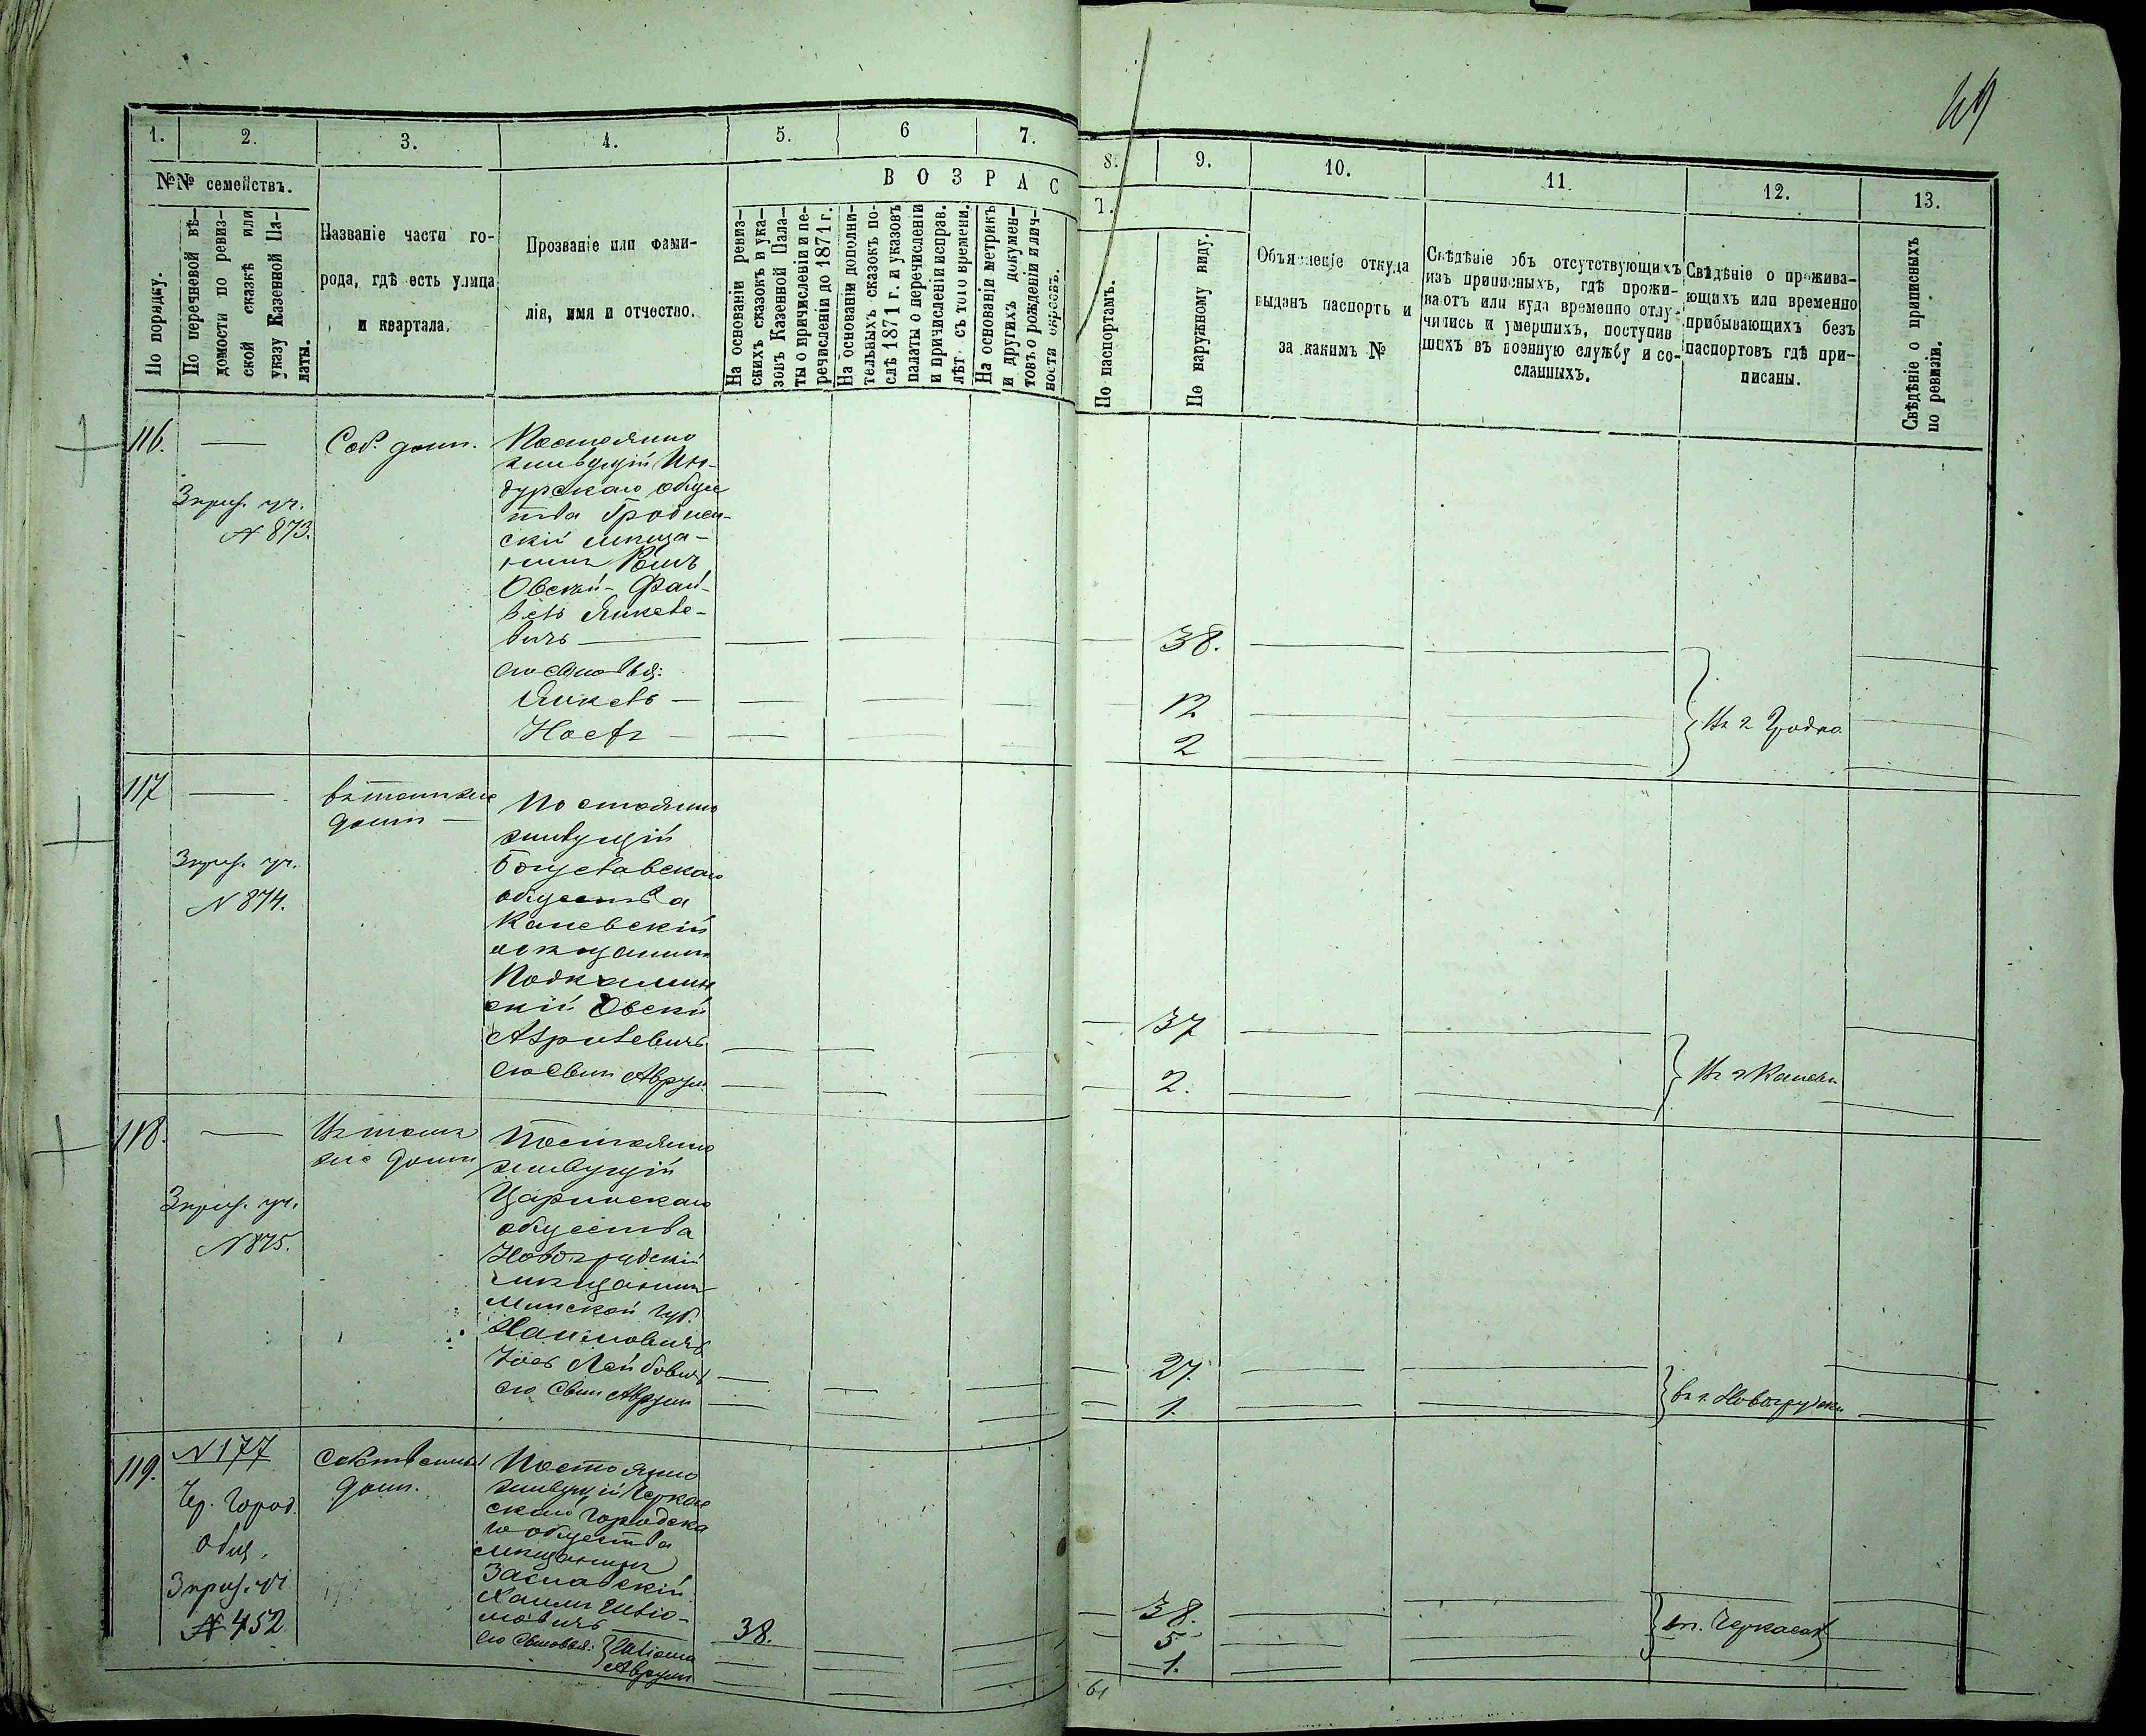 49
1. 2. 3. 4. 5. 6 7.
8. 9. 10. 11. 12. 13.
№№ семействъ.
ВОЗРАС
Т.
По порядку.
По перечневой вѣ-
домости по ревиз-
ской сказкѣ или
указу Казенной Па-
латы.
Названіе части го-
рода, гдѣ есть улица
и квартала.
Прозваніе или фами-
лія, имя и отчество.
На основаніи ревиз-
скихъ сказокъ и ука-
зовъ Казенной Пала-
ты о причисленіи и пе-
речисленіи до 1871 г.
На основаніи дополни-
тельныхъ сказокъ по-
слѣ 1871 г. и указовъ
палаты о перечисленіи
и причисленіи исправ.
лѣт. съ того времени.
На основаніи метрикъ
и другихъ докумен-
товъ о рожденіи и лич-
ности евреевъ.
По паспортамъ.
По наружному виду.
Объясненіе откуда
выданъ паспортъ и
за какимъ №
Свѣдѣніе объ отсутствующихъ
изъ приписныхъ, гдѣ прожи-
ваютъ или куда временно отлу-
чились и умершихъ, поступив
шихъ въ военную службу и со-
сланныхъ.
Свѣдѣніе о прожива-
ющихъ или временно
прибывающихъ безъ
паспортовъ гдѣ при-
писаны.
Свѣдѣніе о приписныхъ
по ревизіи.
116.
3 приз. уч.
№ 873.
Соб. домъ.
Постоянно
живущій Ин-
дурскаго общес
тва Гроднен-
скій мѣща-
нинъ
Овсей-Фай-
вель Янкеле-
вичъ
его сыновья:
Янкель
Носел
38.
12
2
Въ г. Гродно
117
3 приз. уч.
№ 874.
въ томъ же
домѣ
Постоянно
живущій
Богуславскаго
общества
Каневскій
мѣщанинъ
Подкамин
скій Овсей
его сынъ Аврум
37
2.
Въ г. Каневѣ
118.
3 приз. уч.
№ 875.
Въ томъ
же домѣ
Постоянно
живущій
общества
Новогрудскій
мѣщанинъ
Минской губ.
Лейбовичъ
его сынъ Аврум
27.
1.
въ г. Новогрудкѣ
119.
№ 177
Чер. город.
общ.
3 приз. уч
№ 452
Собственный
домъ.
Постоянно
живущій Черкас
скаго городска
го общества
мѣщанинъ
Заславскій
Хаимъ Шліо-
мовичъ
его сыновья: Шліома
Аврумъ
38.
38.
5.
1.
въ г. Черкасахъ
61